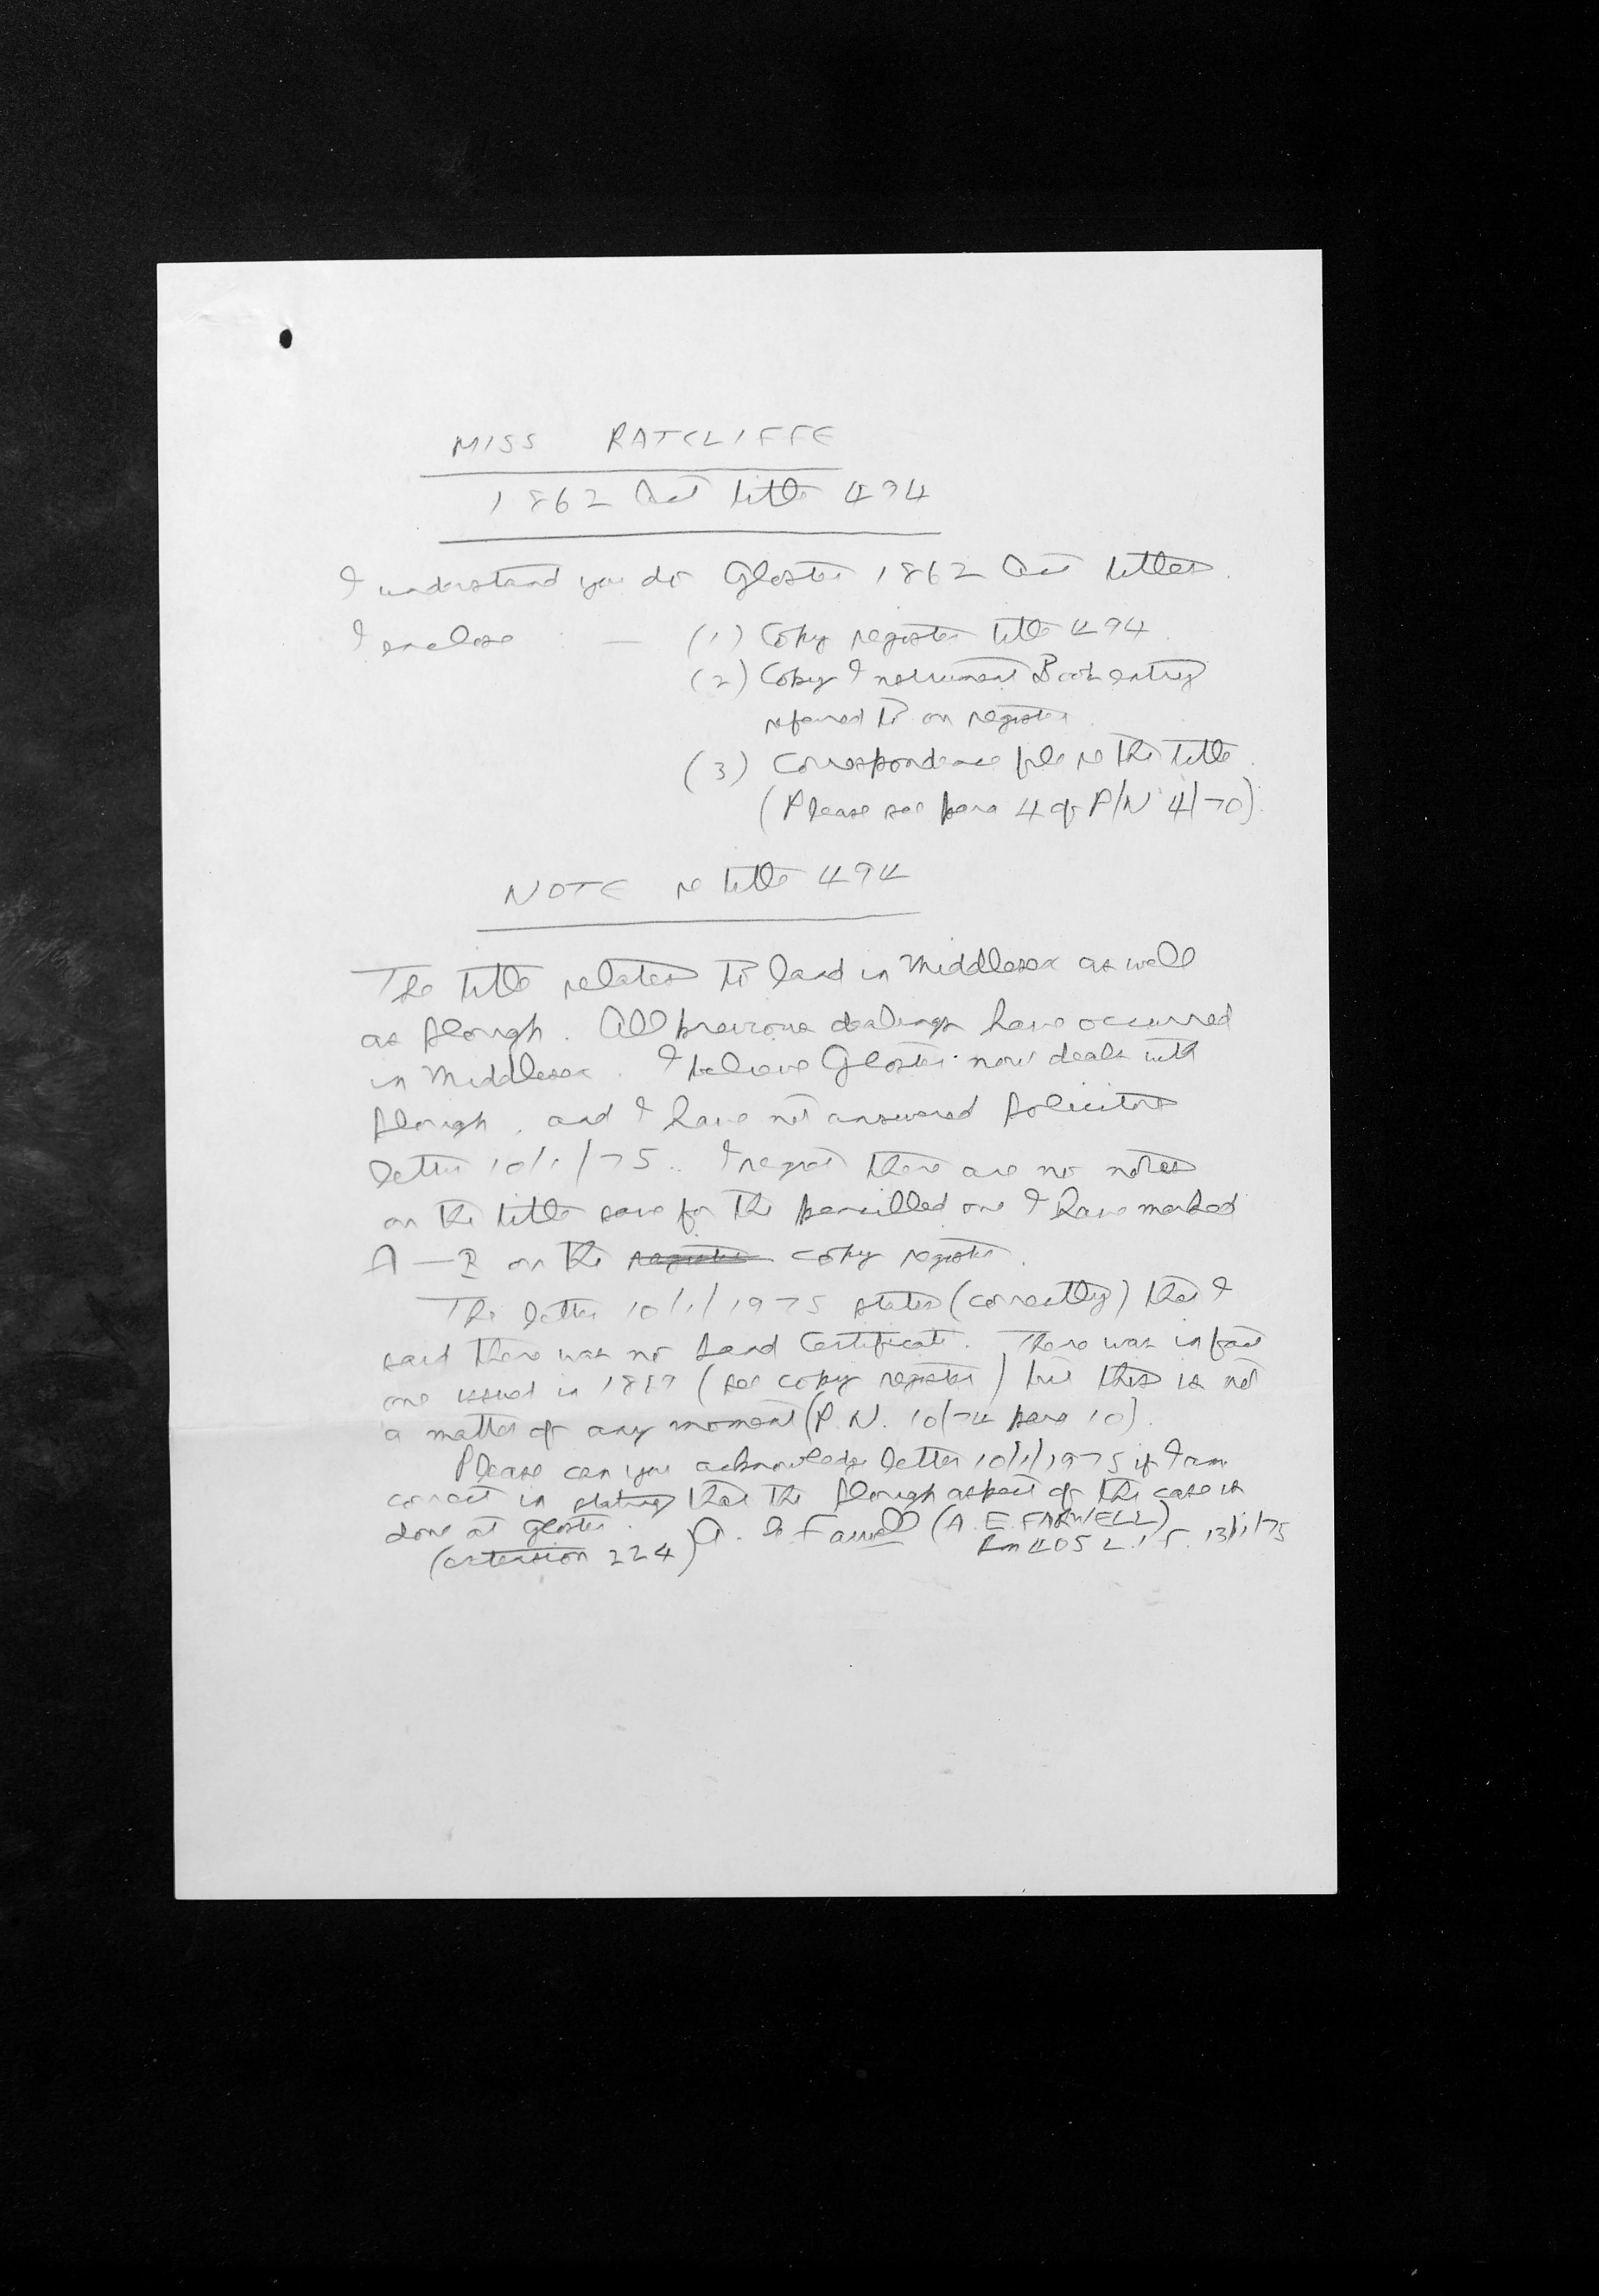 MISS RATCLIFFE
1862 Act title 494
I understand you do Gloster 1862 Act titles.
I enclose — (1) Copy register title 494.
(2) Copy Instrument Book entry
referred to on register.
(3) Correspondence file re the title.
(Please see para 4 of P/N 4/70).
NOTE re title 494
The title relates to land in Middlesex as well
as Slough. All previous dealings have occurred
in Middlesex. I believe Gloster now deals with
Slough, and I have not answered Solicitors
letter 10/1/75. I regret there are no notes
on the title save for the pencilled one I have marked
A — B on the register copy register.
The letter 10/1/1975 states (correctly) that I
said there was no Land Certificate. There was in fact
one issued in (see copy register) but this is not
a matter of any moment (P.N. 10/74 para 10).
Please can you acknowledge letter 10/1/1975 if I am
correct in stating that the Slough aspect of the case is
done at Gloster. A. E. Farwell (A. E. FARWELL)
(extension 224) Rm 405 13/1/75